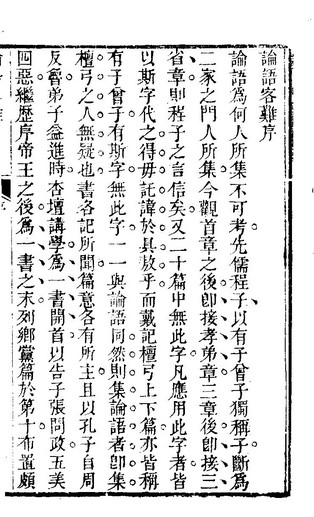 論語客難序
論語爲何人所集不可考先儒程子以有子曾子獨稱子斷爲
二家之門人所集今觀首章之後卽接孝弟章三章後卽接三
省章則程子之言信矣又二十篇中無此字凡應用此字者皆
以斯字代之得毋託諱於具敖乎而戴記檀弓上下篇亦皆稱
有子曾子有斯字無此字一一與論語同然則集論語者卽集
檀弓之人無疑也書各記所聞篇意各有所主且以孔子自周
反魯弟子益進時杏壇講學爲一書開首以告子張問政五美
四惡繼歷序帝王之後爲一書之末列鄉黨篇於第十布置頗